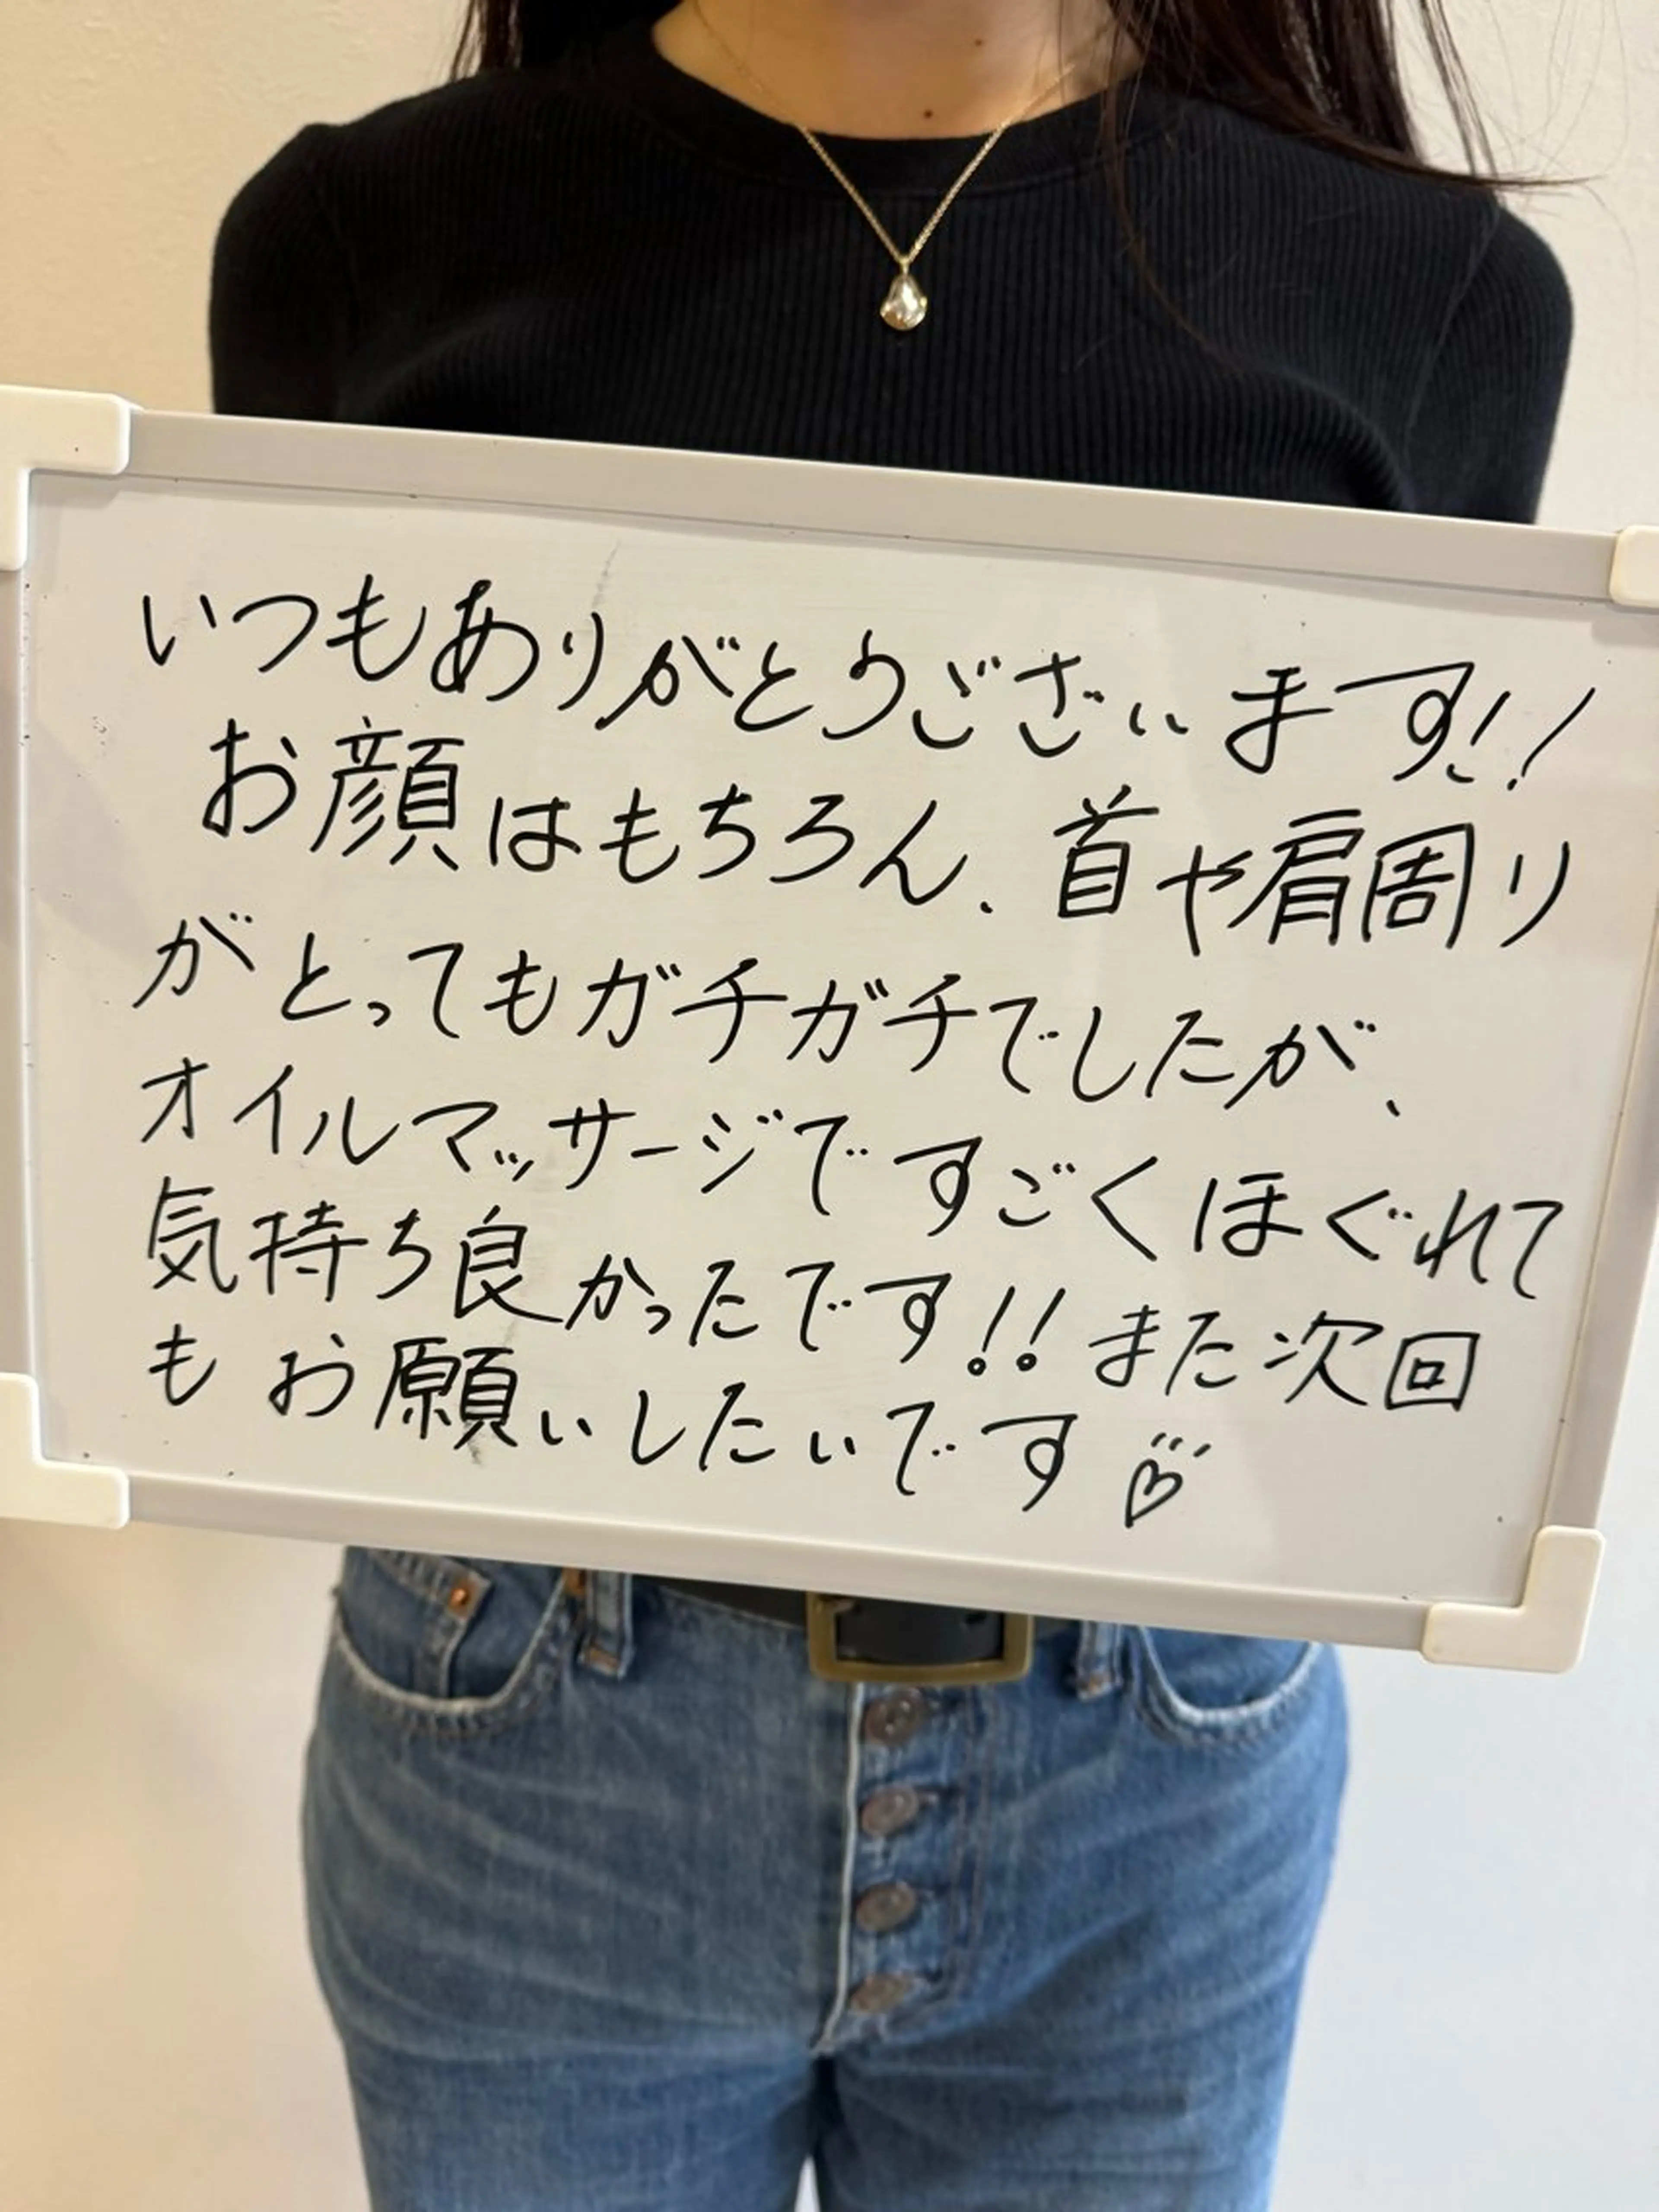 いつもありがとうございます!!
お顔はもちろん、首や肩周り
がとってもガチガチでしたが、
オイルマッサージですごくほぐれて
気持ち良かったです!!また次回
もお願いしたいです♡